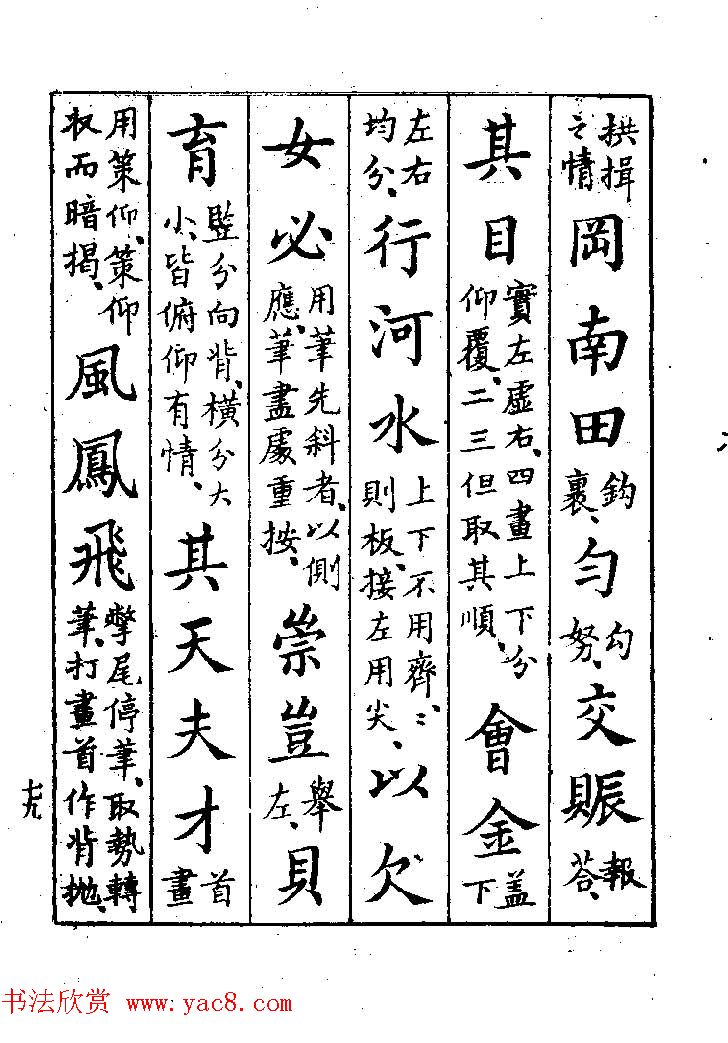 拱揖之情、岡南田鈎裹、勻勾努、交賑報荅、
其目實左虛右、四畫上下分仰覆、二三但取其順、會金盖下
左右均分、行河水上下不用齊、⺀則板、接左用尖、以欠
女必用筆先斜者、以側應、筆畫處重按、崇豈舉左、貝
育監分向背、橫分大小、皆俯仰有情、其天夫才首畫
用策仰、策仰收而暗揭、風鳳飛撆尾停筆、取勢轉筆、打畫首作背拋、
十九
书法欣赏 www.yac8.com